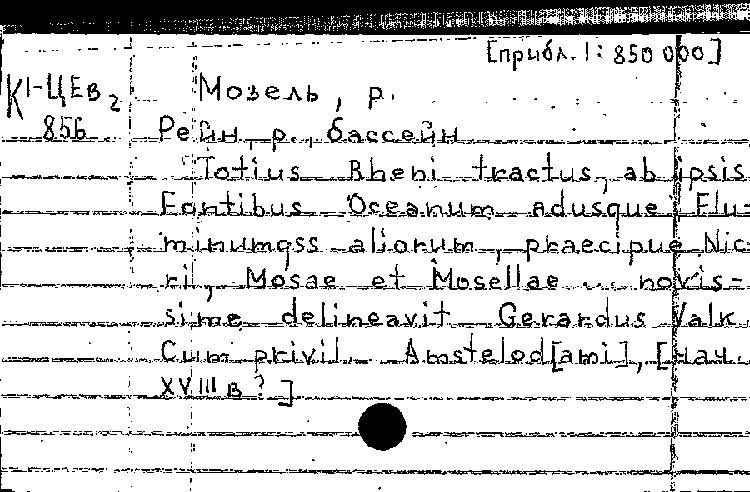 [прибл. 1:850 000]
К1-ЦЕв 2
856
Мозель, р.
Рейн, р., бассейн
Totius Rheni tractus, ab ipsis
Fontibus Oceanum adusque Flu-
minumqss aliorum, praecipue Nic-
ri, Mosae et Mosellae ... novis-
sime delineavit Gerardus Valk.
Cum privil. Amstelod[ami], [нач.
XVIII в?]